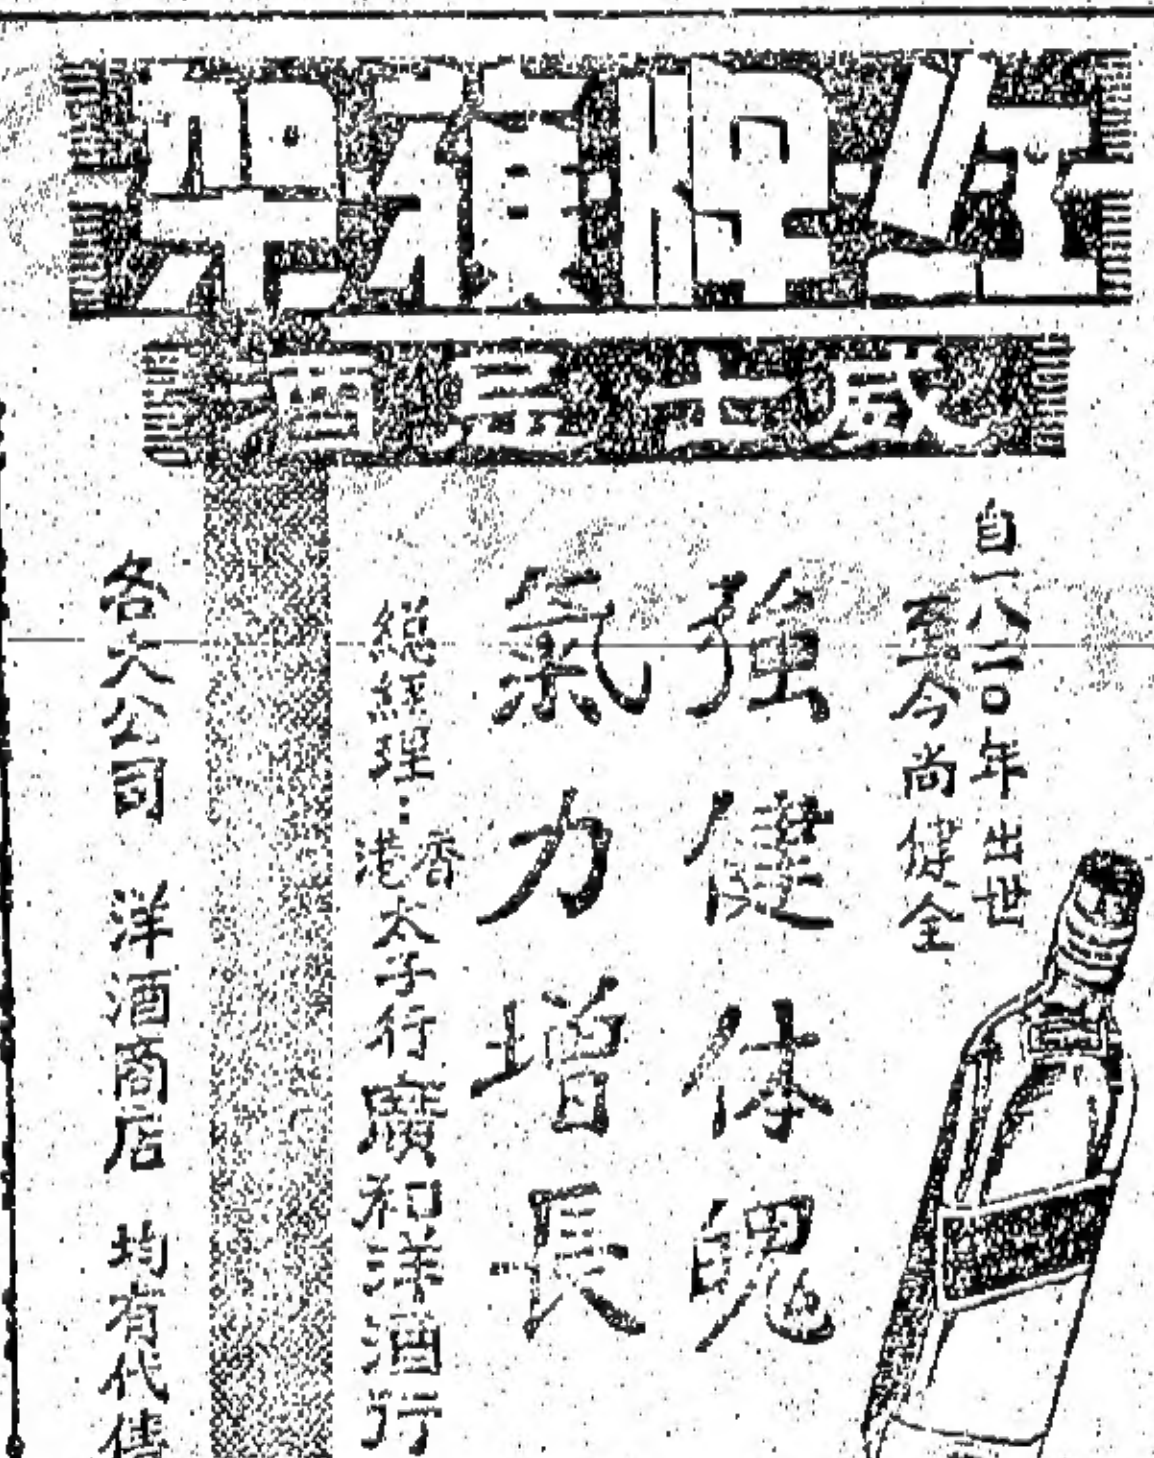 紅牌複架
威士忌酒
自一八二〇年出世
至今尚健全
強健体魄
氣力增長
總經理：香港太子行廣和洋酒行
各大公司 洋酒商店 均有代售